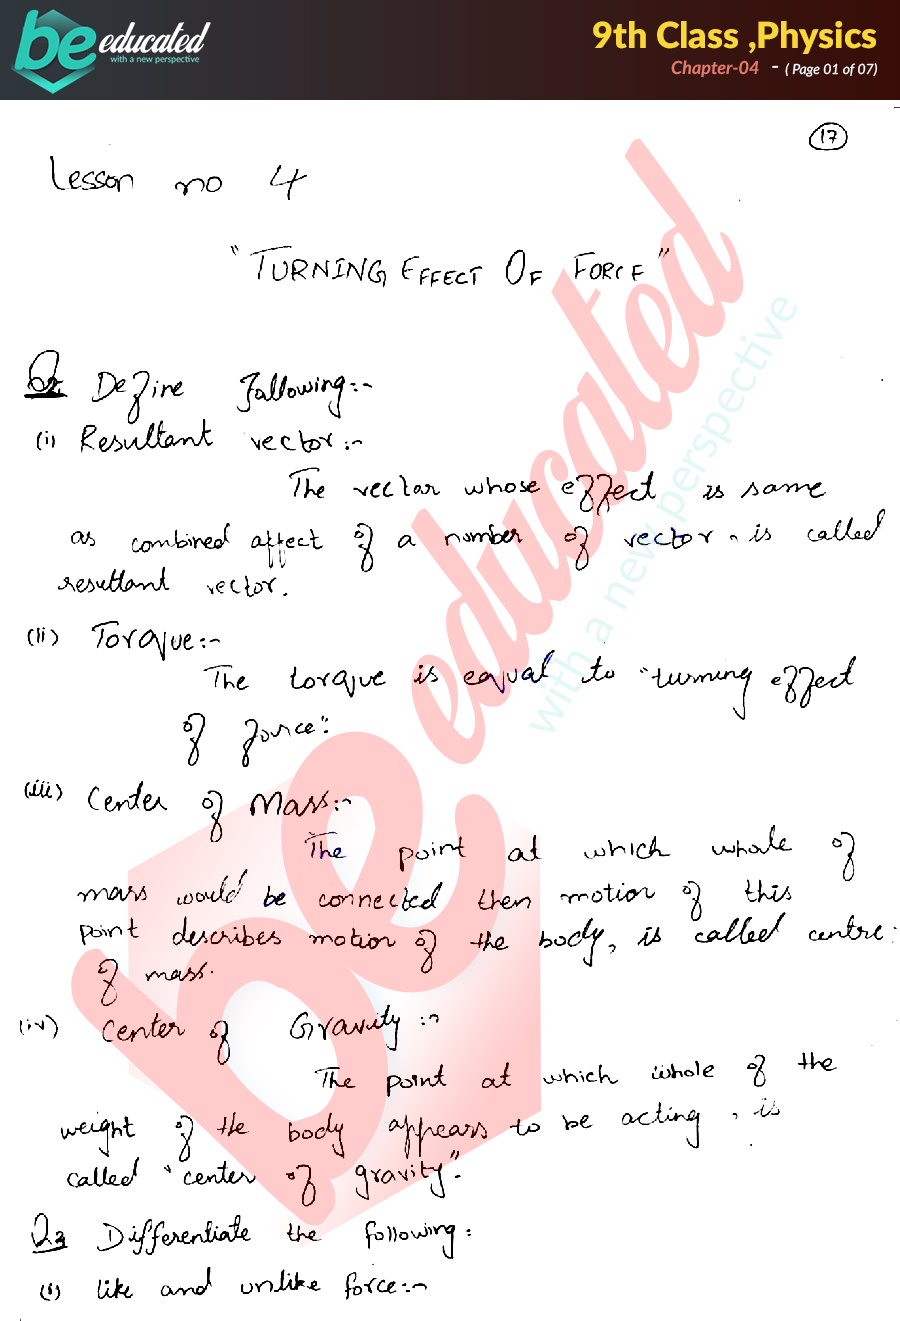 be educated
with a new perspective
9th Class ,Physics
Chapter-04 - ( Page 01 of 07)
17
Lesson no 4
"TURNING EFFECT OF FORCE"
Q2 Define Following:-
(i) Resultant vector:-
The vector whose effect is same
as combined affect of a number of vector, is called
resultant vector.
(ii) Torque:-
The torque is equal to "turning effect
of force".
(iii) Center of Mass:-
The point at which whole of
mass would be connected then motion of this
point describes motion of the body, is called centre
of mass.
(iv) Center of Gravity:-
The point at which whole of the
weight of the body appears to be acting, is
called "center of gravity".
Q.3 Differentiate the following:
(i) like and unlike force:-
be educated
with a new perspective